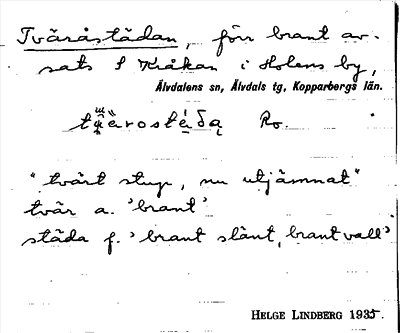 Tväråstädan, förr brant av-
sats S Kråkan i Holens by,
Älvdalens sn, Älvdals tg, Kopparbergs län.
Ro.
"tvärt stup, nu utjämnat"
tvär a. 'brant'
städa f. 'brant slänt, brant vall'
HELGE LINDBERG 1935.